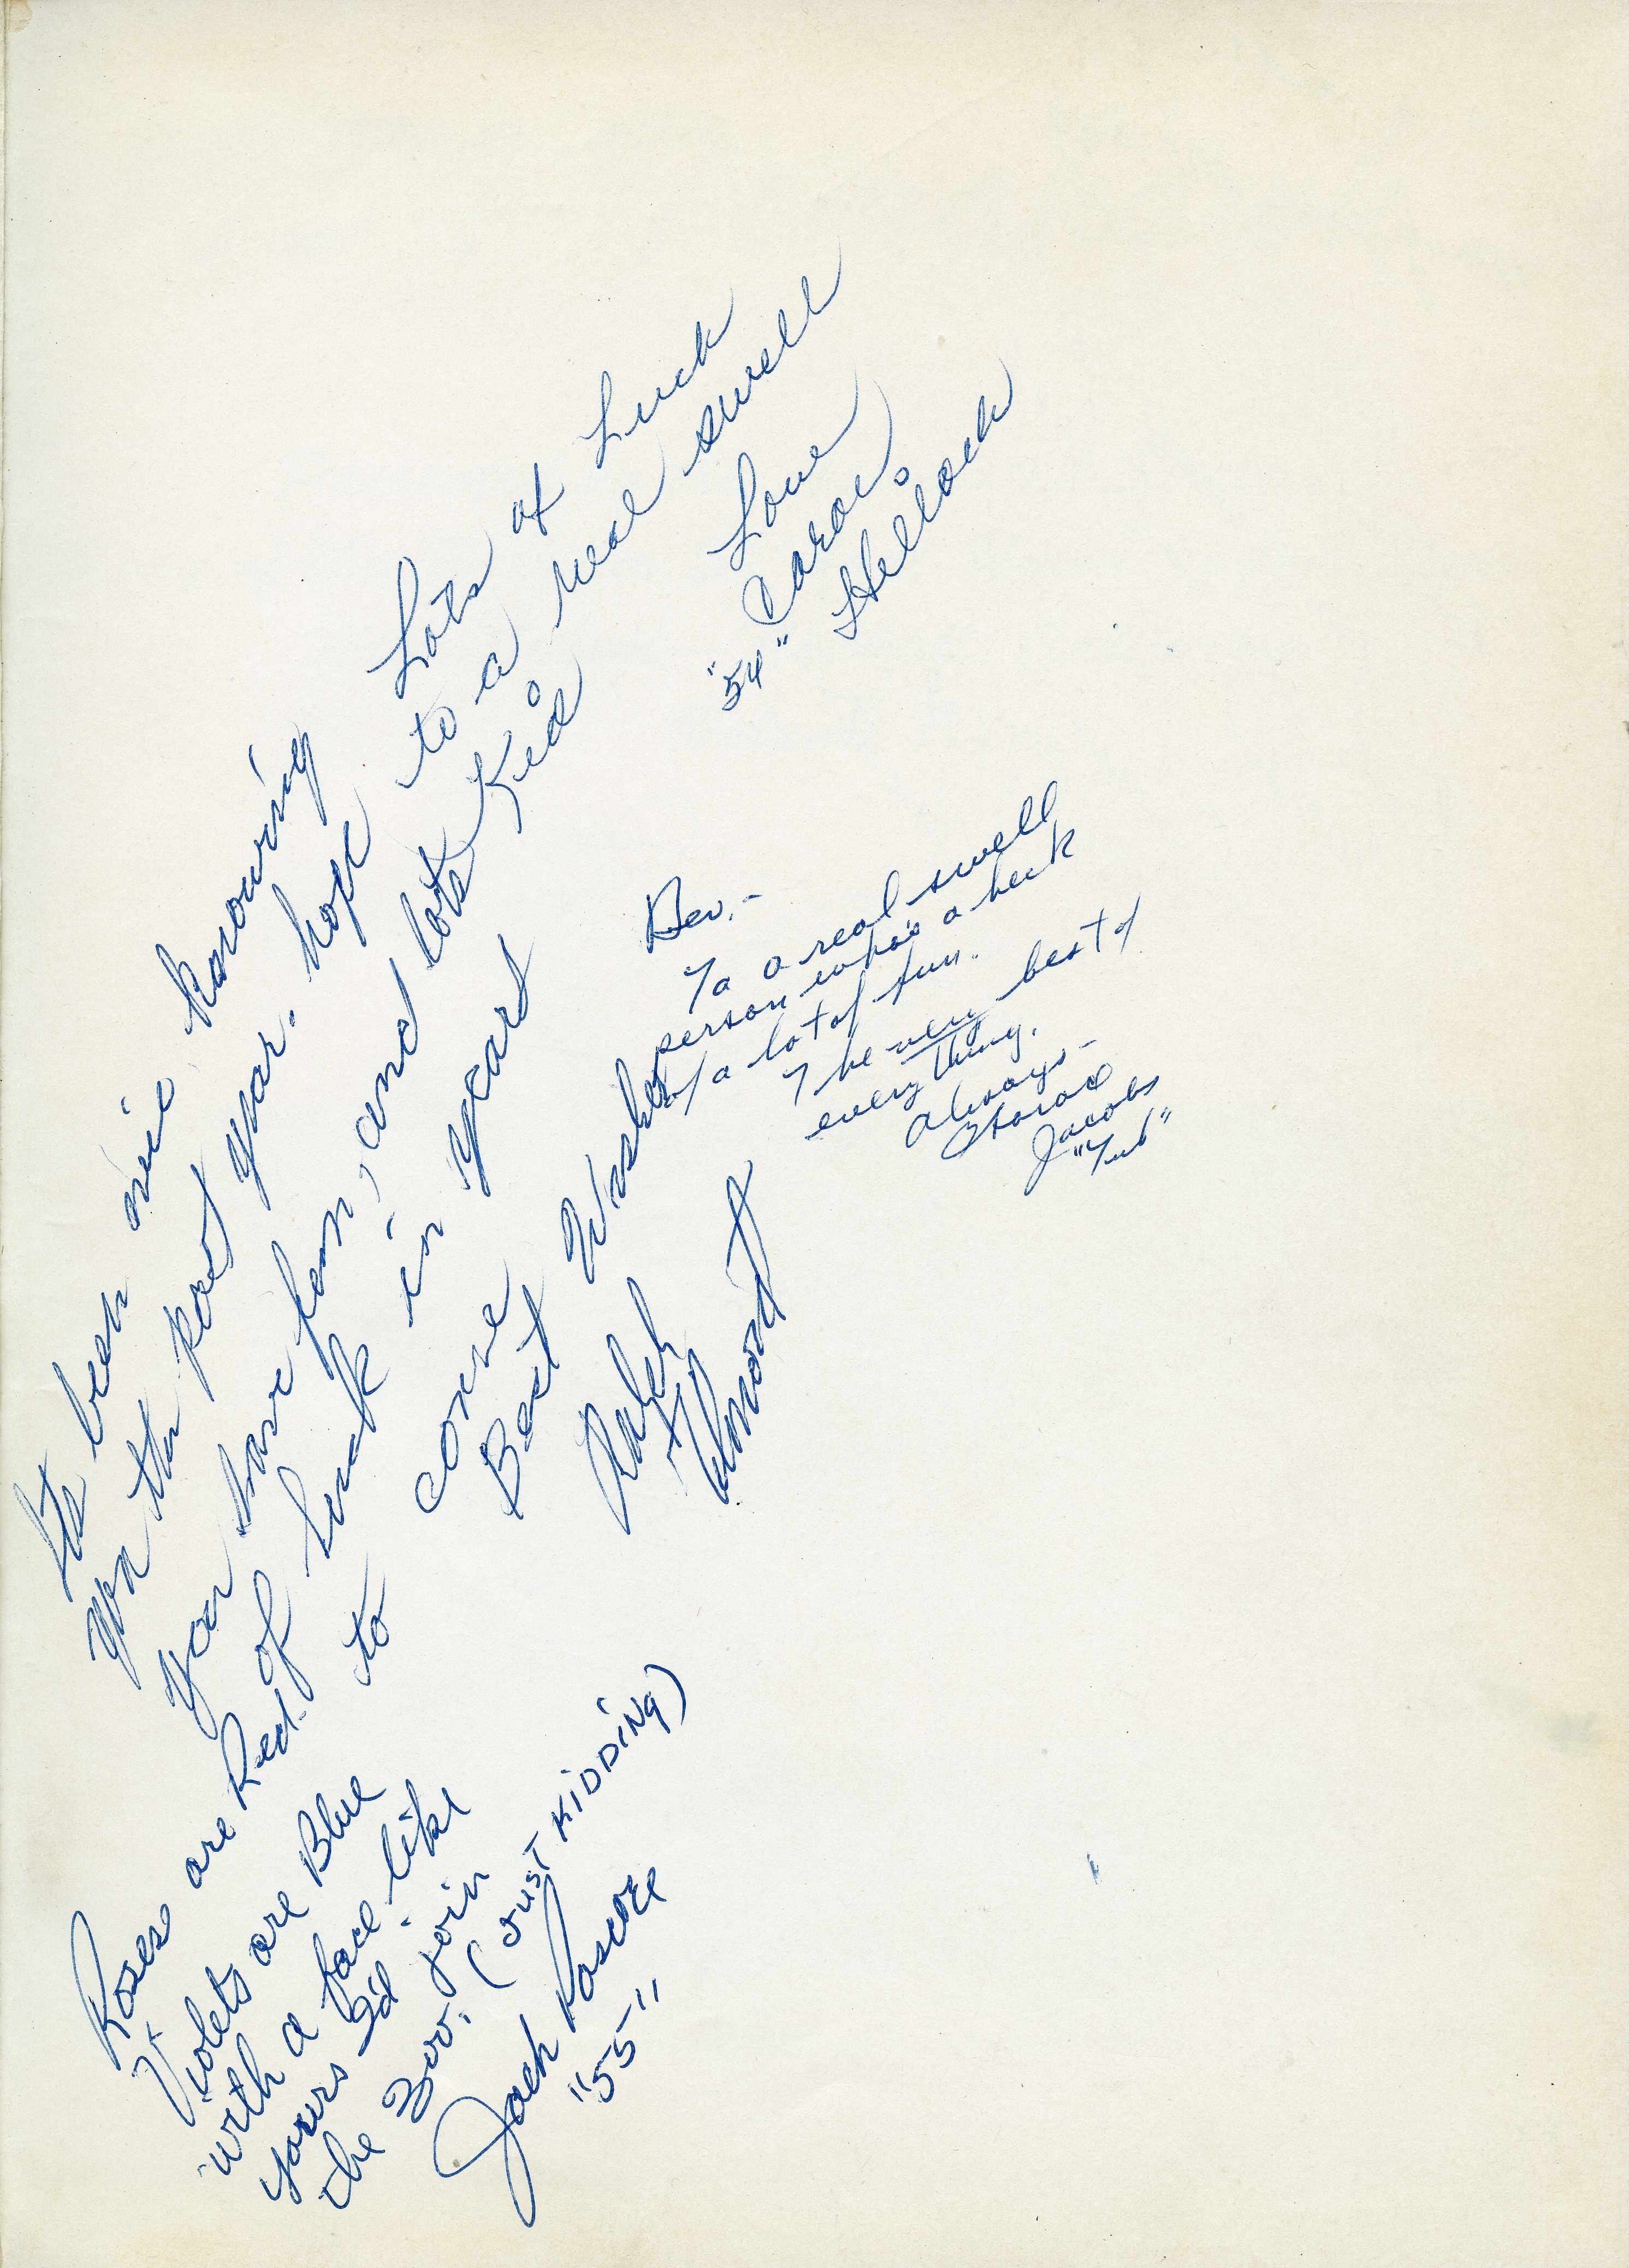 Lots of Luck
to a real swell
Kid
Love
"54" Carol
Hellock
Its been nice knowing
you this past year. hope
you have fun, and lots
of luck in years
to come
Best Wishes
Ralph
Bev.-
To a real swell
person who's a heck
of a lot of fun.
The very best of
everything.
Always-
Jacobs
Roses are Red
Violets are Blue
with a face like
yours I'd join
the Zoo. (JUST KIDDiNg)
Jack Pascoe
"55"